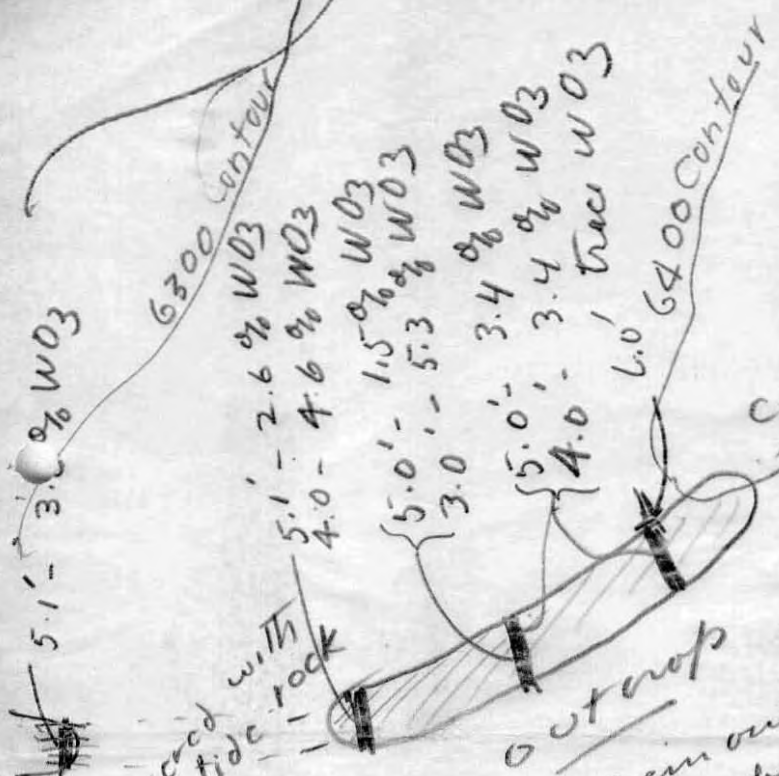 5.1' - 3. % WO3
6300 contour
5.1' - 2.6 % WO3
4.0 - 4.6 % WO3
5.0' - 1.5 % WO3
3.0' - 5.3 % WO3
5.0' - 3.4 % WO3
4.0' - 3.4 % WO3
trace WO3
6400 Contour
with
rock
outcrop